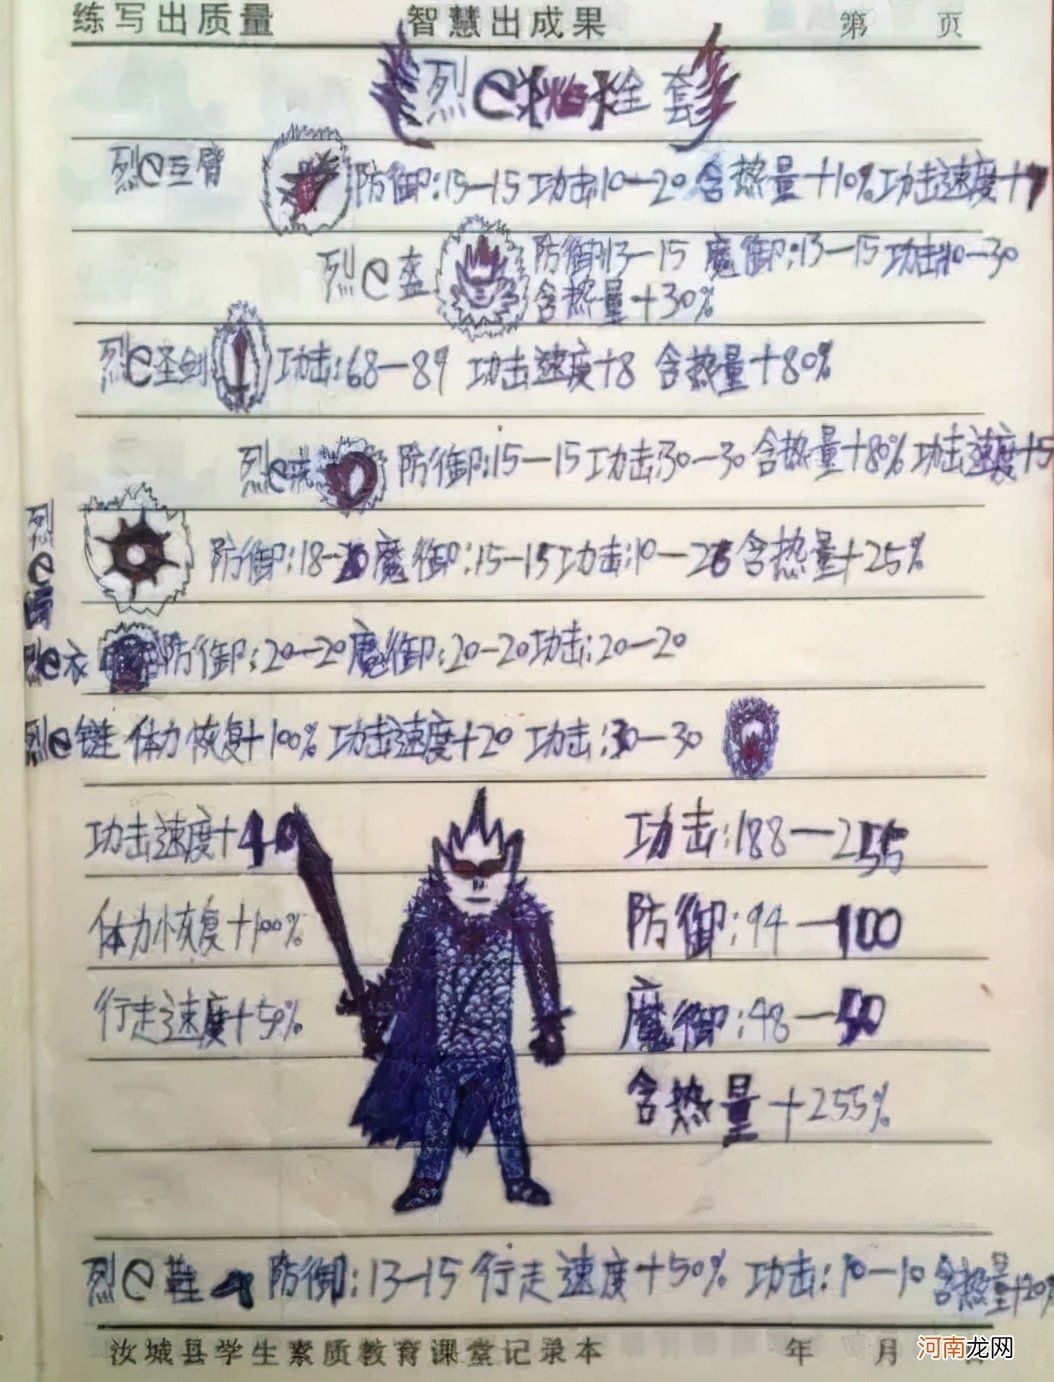 练写出质量 智慧出成果 第 页
烈e焰全套
烈e互臂 防御:15—15 功击:10—20 含热量+10% 功击速度+7
烈e盔 防御:13—15 魔御:13—15 功击:10—30
含热量+30%
烈e圣剑 功击:68—89 功击速度+8 含热量+80%
烈e戒 防御:15—15 功击:30—30 含热量+80% 功击速度+5
烈e
防御:18— 魔御:15—15 功击:10— 含热量+25%
烈e衣 防御:20—20 魔御:20—20 功击:20—20
烈e链 体力恢复+100% 功击速度+20 功击:30—30
功击速度+40 功击:188—255
体力恢复+100% 防御:94—100
行走速度+50% 魔御:48—50
含热量+255%
烈e鞋 防御:13—15 行走速度+50% 功击:10—10 含热量+20%
汝城县学生素质教育课堂记录本 年 月
河南龙网